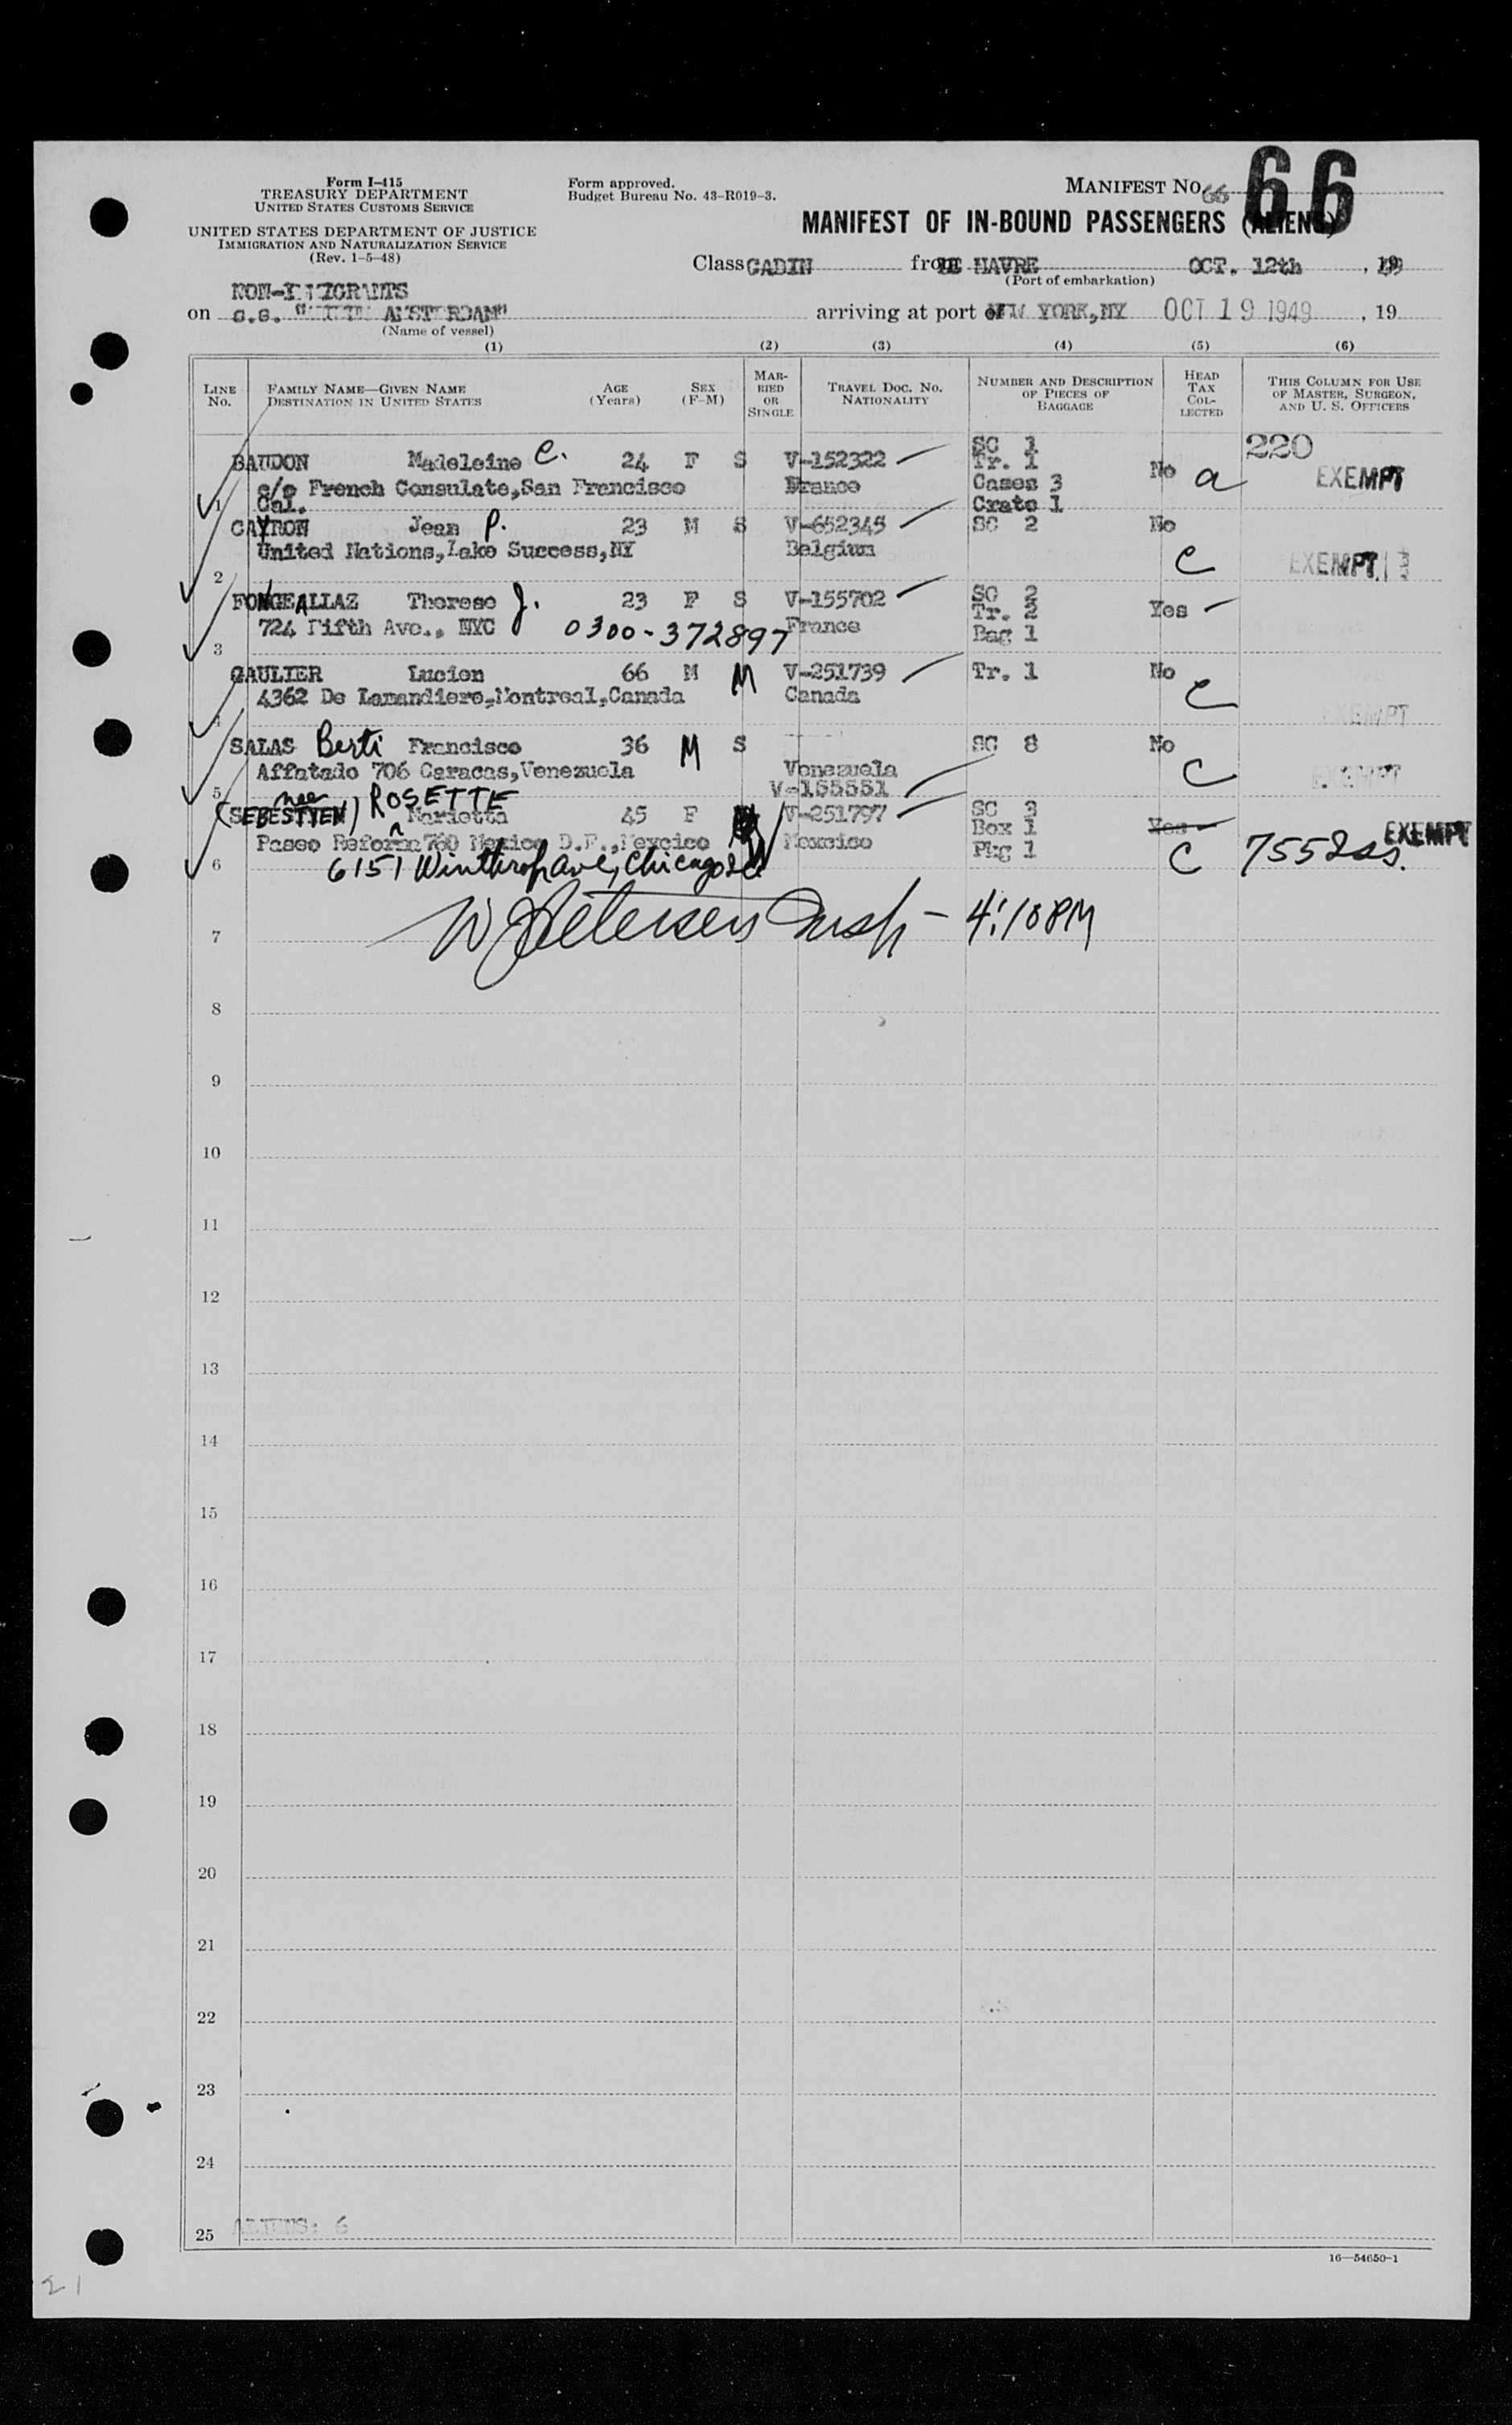 Form I-415
TREASURY DEPARTMENT
UNITED STATES CUSTOMS SERVICE
UNITED STATES DEPARTMENT OF JUSTICE
IMMIGRATION AND NATURALIZATION SERVICE
(Rev. 1-5-48)
Form approved.
Budget Bureau No. 43-R019-3.
MANIFEST No. 66 66
MANIFEST OF IN-BOUND PASSENGERS (ALIENS)
Class CABIN from LE HAVRE OCT. 12th, 19
(Port of embarkation)
NON-IMMIGRANTS
on S.S. AMSTERDAM" arriving at port of NEW YORK,NY OCT 19 1949, 19
(Name of vessel)
(1) (2) (3) (4) (5) (6)
LINE No. FAMILY NAME—GIVEN NAME DESTINATION IN UNITED STATES AGE (Years) SEX (F-M) MARRIED OR SINGLE TRAVEL DOC. NO. NATIONALITY NUMBER AND DESCRIPTION OF PIECES OF BAGGAGE HEAD TAX COLLECTED THIS COLUMN FOR USE OF MASTER, SURGEON, AND U. S. OFFICERS
BAUDON Madeleine C. 24 F S V-152322 SC 1 No a 220
c/o French Consulate,San Francisco France Tr. 1 EXEMPT
1 Cal. Cases 3
Crate 1
CAYRON Jean P. 23 M S V-652345 SC 2 No
United Nations,Lake Success,NY Belgium C EXEMPT
2
FONGEALLAZ Therese J. 23 F S V-155702 SC 2 Yes
724 Fifth Ave., NYC 0300-372897 France Tr. 2
3 Bag 1
GAULIER Lucien 66 M M V-251739 Tr. 1 No
4362 De Lamandiere,Montreal,Canada Canada C
4 EXEMPT
SALAS Berti Francisco 36 M S SC 8 No
Affatado 706 Caracas,Venezuela Venezuela C EXEMPT
5 V-155551
(nee SEBESTYEN) ROSETTE Marietta 45 F W V-251797 SC 3 Yes
Paseo Reforma 760 Mexico D.F.,Mexcico Mexcico Box 1 EXEMPT
6 6151 Winthrop Ave, Chicago Pkg 1 C 7552
7 4:10 PM
8
9
10
11
12
13
14
15
16
17
18
19
20
21
22
23
24
25 ALIENS: 6
16—54650-1
21